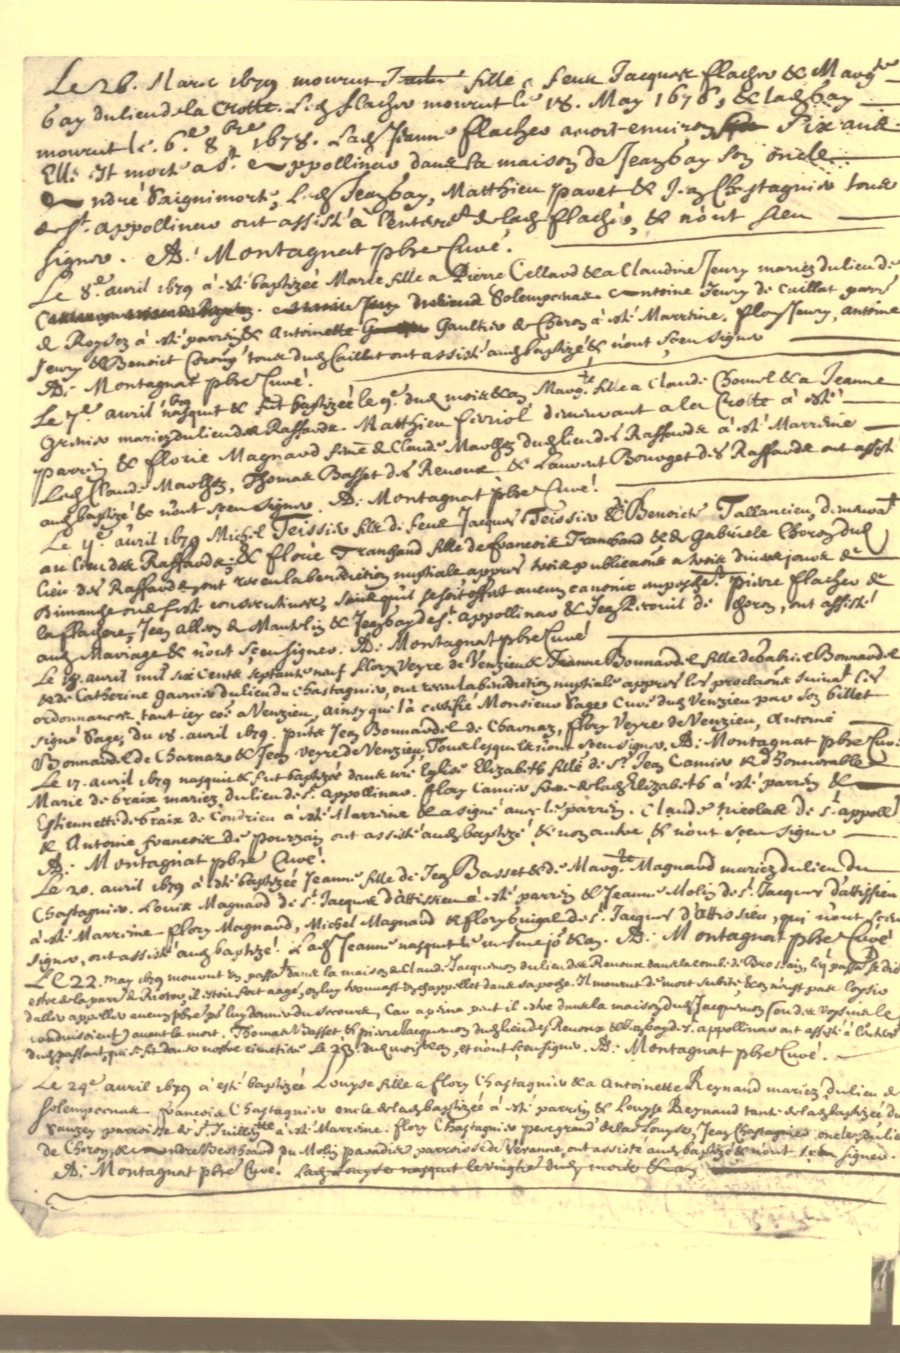 Le 26. Mars 1679 mourut fille a feux Jacques flacher & Marg.te
Bay du lieu de la Crotte. Led flacher mourut le 18. May 1676, & lad bay
mourut le 6.e 8.bre 1678. Lad Jeanne flacher avoit environ six ans.
Elle est morte a St. Appollinar dans la maison de Jean bay son oncle.
André Saignimorte, Led Jean bay, Matthieu pavet & Jean Chastagnier tous
de St. appollinar ont assisté à l'enterrt de lad flacher, & n'ont sceu
signer. A. Montagnat pbre Curé.
Le 8.e avril 1679 à esté baptizée Marie fille a Pierre Cellard & a Claudine Jeury mariez du lieu de
Solempcenas Antoine Jeury de Caillat parr
de Royson à esté parrin & Antoinette Gaultier de Choron à esté Marrine. flory Jeury, antoine
Jeury & Benoict tous dud Caillat ont assisté aud baptizé & n'ont sceu signer
A. Montagnat pbre Curé.
Le 7.e avril 1679 nasquit & fut baptizée le 9.e dud mois & an Marg.te fille a Claude & a Jeanne
Grenier mariez du lieu des Raffards. Matthieu ferriol demeurant a la Crotte à esté
parrin & florie Magnard feme de Claude dud lieu des Raffards à esté Marrine
Led Claude Thomas Basset des Renoux & Laurent Bourget des Raffards ont assisté
aud baptizé & n'ont sceu signer. A. Montagnat pbre Curé.
Le avril 1679 Michel Teissier fils de feux Jacques Teissier & Benoicte Tallancieu, demeurat
au lieu des Raffards, & florie Tranchand fille de francois Tranchand & de Gabriele Choron dud
lieu des Raffards ont receu la benediction nuptiale appres trois publicaons a trois divers jours de
Dimanche ou de feste consecutives, sans quil se soit offert aucun canonic empeschet. pierre flacher de
la flachere, Jean allion de & Jean bay de St. appollinar & Jean de Choron, ont assisté
aud Mariage & n'ont sceu signer. A. Montagnat pbre Curé
Le 18. avril mil six cents septante neuf flory Veyre de Venzieu & Jeanne Bonnardel fille de Gabriel Bonnardel
& de Catherine garnier du lieu du Chastagnier, ont receu la benediction nuptiale appres les proclaons suivat les
ordonnances, tant icy coe a Venzieu, ainsy qui l'a certifié Monsieur Sage Curé dud Venzieu par son billet
signé Sage, du 18. avril 1679. pnts Jean Bonnardel de Charnas, flory Veyre de Venzieu, Antoine
Bonnardel de Charnas & Jean veyre de Venzieu Tous lesquels n'ont sceu signer. A. Montagnat pbre Curé
Le 17. avril 1679 nasquit & fut baptizée dans nre Eglise Elizabeth fille de Sr. Jean Camier & d'honnorable
Marie de braix mariez du lieu de St. appollinar. flory Camier frere de lad Elizabeth à esté parrin &
Estiennette de braix de Condrieu à esté Marrine & a signé avec le parrin. Claude nicolas de St. appoll
& Antoine francois de pourzain ont assisté aud baptizé & non autre & n'ont sceu signer
A. Montagnat pbre Curé.
Le 20. avril 1679 à esté baptizée Jeanne fille de Jean Basset & de Marg.te Magnard mariez du lieu du
Chastagnier. Louis Magnard de St. Jacques d'attissieu à esté parrin & Jeanne Molin de St. Jacques d'attissieu
à esté Marrine flory Magnard, Michel Magnard & flory de St. Jacques d'attissieu, qui n'ont sceu
signer, ont assisté aud baptizé. Lad Jeanne nasquit le mesme jo. & an. A. Montagnat pbre Curé
Le 22. may 1679 mourut un passat dans la maison de Claude Jacquemon du lieu des Renoux dans la combe de led passat se dis
estre de la parr de il estoit fort aagé, on luy trouva un chappellet dans sa poche. Il mourut de mort subite, & on n'eust pas loysir
daller appeller aucun pbre po. luy donner du secours, Car a peine peut il estre dans la maison dud Jacquemon (ou des voysins le
conduisoient) avant la mort. Thomas Basset & pierre Jacquemon dud lieu des Renoux & bay de St. appollinar ont assisté a l'enterrt
dud passant, qui se fit dans nostre cimetiere Le 23. dud mois & an, et n'ont sceu signer. A. Montagnat pbre Curé.
Le 24.e avril 1679 à esté baptizée Louyse fille a flory Chastagnier & a Antoinette Reynaud mariez du lieu de
Solempcenas francois Chastagnier oncle de lad baptizée à esté parrin & Louyse Reynaud tante de lad baptizée du
Sauzey parroisse de St. Jullien à esté Marrine. flory Chastagnier peregrand de lad Louyse, Jean Chastagnier oncle du lieu
de Choron, & André du Molin parroisse de Veranne, ont assisté aud baptizé & n'ont sceu signer.
A. Montagnat pbre Curé. Lad Louyse nasquit le vingtie dud mois & an